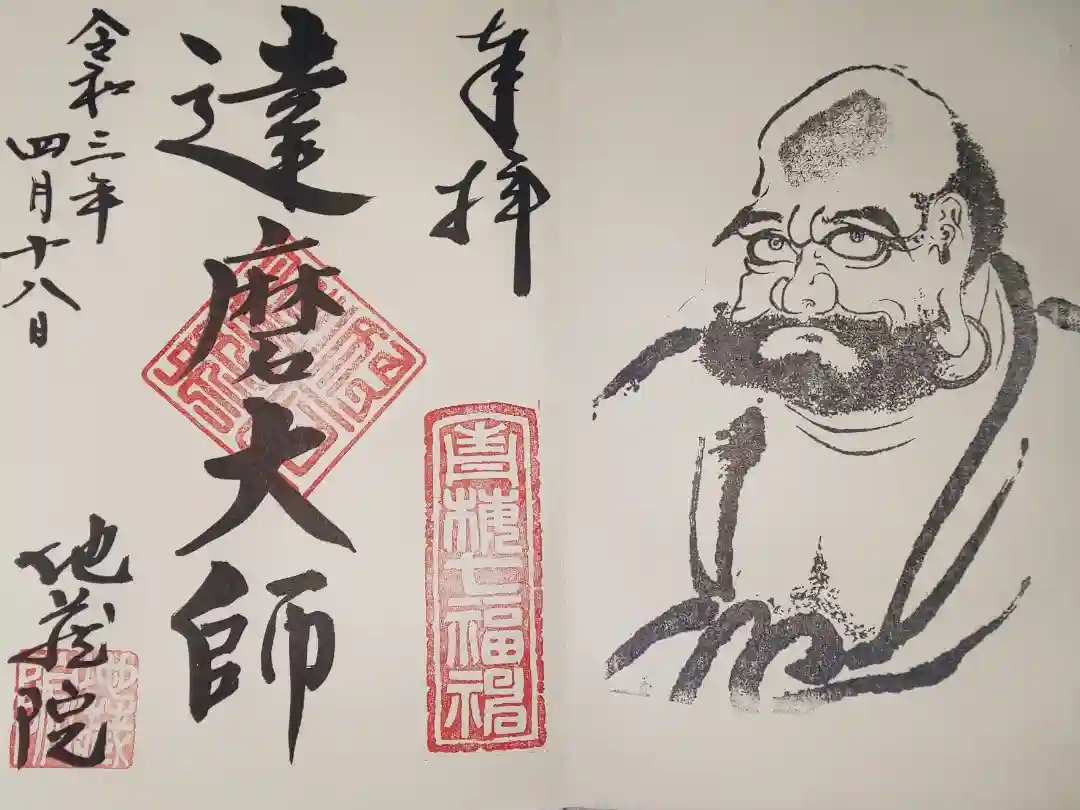 奉拝
青梅七福神
達磨大師
令和三年
四月十八日
地蔵院